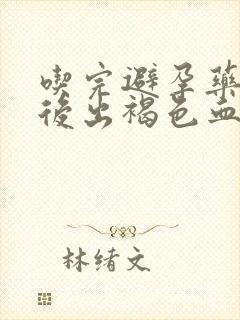 喫完避孕藥
後出褐色血
林绪文